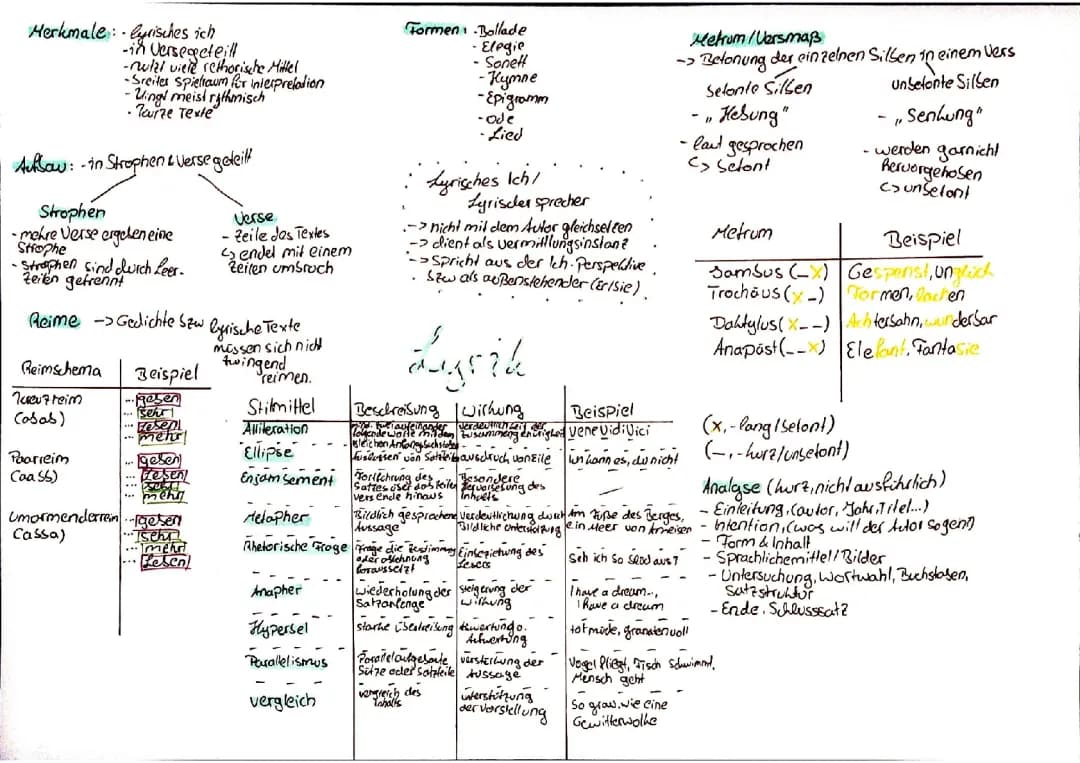 Merkmale: - lyrisches ich
- in Verse geteilt
- nutzt viele rethorische Mittel
- breiter Spielraum für Interpretation
- klingt meist rythmisch
- kurze Texte
Formen: - Ballade
- Elegie
- Sonett
- Hymne
- Epigramm
- Ode
- Lied
Metrum/Versmaß
-> Betonung der einzelnen Silben in einem Vers
betonte Silben
- „Hebung"
- laut gesprochen
↳ betont
unbetonte Silben
- „Senkung"
- werden garnicht
hervorgehoben
↳ unbetont
Aufbau: - in Strophen & Verse geteilt
Strophen
- mehre Verse ergeben eine
Strophe
- Strophen sind durch Leer-
zeilen getrennt
Verse
- Zeile des Textes
↳ endet mit einem
Zeilen umbruch
Lyrisches Ich/
Lyrischer sprecher
-> nicht mit dem Autor gleichsetzen
-> dient als Vermittlungsinstanz
-> Spricht aus der Ich-Perspektive
bzw als außenstehender (Er/sie)
Metrum Beispiel
Jambus (_x) Gespenst, unglück
Trochäus (x_) Formen,
Daktylus (x--) Achterbahn, wunderbar
Anapäst (--x) Elefant, Fantasie
(x, - lang/betont)
(-, - kurz/unbetont)
Reime -> Gedichte bzw lyrische Texte
müssen sich nicht
zwingend
reimen.
Reimschema Beispiel
Kreuzreim
(abab)
... geben
... sehr
... leben
... mehr
Paarreim
(aabb)
... geben
... leben
... sehr
... mehr
Umarmenderreim
(abba)
... geben
... sehr
... mehr
... leben
Lyrik
Stilmittel Beschreibung Wirkung Beispiel
Alliteration mind. zwei aufeinander folgende Worte mit dem gleichen Anfangsbuchstabe verdeutlicht der zusammengehörigkeit Vene Vidi Vici
Ellipse Auslassen von Satzteilen ausdruck von Eile du nicht
Enjambement Fortführung des Satzes über das Vers ende hinaus Besondere Hervorhebung des Inhalts —
Metapher Bildlich gesprochene Aussage Verdeutlichung durch Bildliche Unterstützung Am Fuße des Berges, ein Meer von Ameisen
Rhetorische Frage Frage die zustimmung oder ablehnung voraussetzt Einbeziehung des Lesers Seh ich so blöd aus?
Anapher Wiederholung der Satzanfänge steigerung der Wirkung I have a dream..., I have a dream
Hyperbel starke Übertreibung Abwertung o. Aufwertung totmüde, granatenvoll
Parallelismus Parallel aufgebaute Sätze oder Satzteile verstärkung der Aussage Vogel fliegt, Fisch schwimmt, Mensch geht
vergleich vergleich des Inhalts unterstützung der Vorstellung So grau, wie eine Gewitterwolke
Analyse (kurz, nicht ausführlich)
- Einleitung, (autor, Jahr, Titel...)
- Intention, (was will der Autor sagen?)
- Form & Inhalt
- Sprachlichemittel/Bilder
- Untersuchung, Wortwahl, Buchstaben,
Satzstruktur
- Ende. Schlusssatz